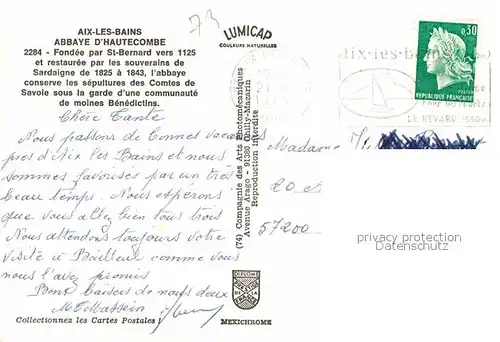 73
AIX-LES-BAINS
ABBAYE D'HAUTECOMBE
2284 - Fondée par St-Bernard vers 1125
et restaurée par les souverains de
Sardaigne de 1825 à 1843, l'abbaye
conserve les sépultures des Comtes de
Savoie sous la garde d'une communauté
de moines Bénédictins.
LUMICAP
COULEURS NATURELLES
0,30
REPUBLIQUE FRANÇAISE
aix-les-
LE REVARD 1550m
Chère Tante
Nous passons de bonnes vacances
près d'Aix les Bains et nous
sommes favorisés par un très
beau temps. Nous espérons
que vous allez bien tous trois
Nous attendons toujours votre
visite à Bailleul comme vous
nous l'avez promis
Bons baisers de nous deux
(74) Compagnie des Arts Photomécaniques
Avenue Arago - 91380 Chilly-Mazarin
Reproduction interdite
Madame
20
57200
privacy protection
Datenschutz
DIPLOME
Collectionnez les Cartes Postales !
MEXICHROME